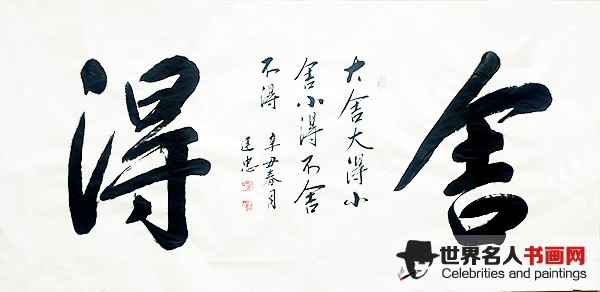 舍得
大舍大得小
舍小得不舍
不得 辛丑春月
建忠
世界名人书画网
Celebrities and paintings